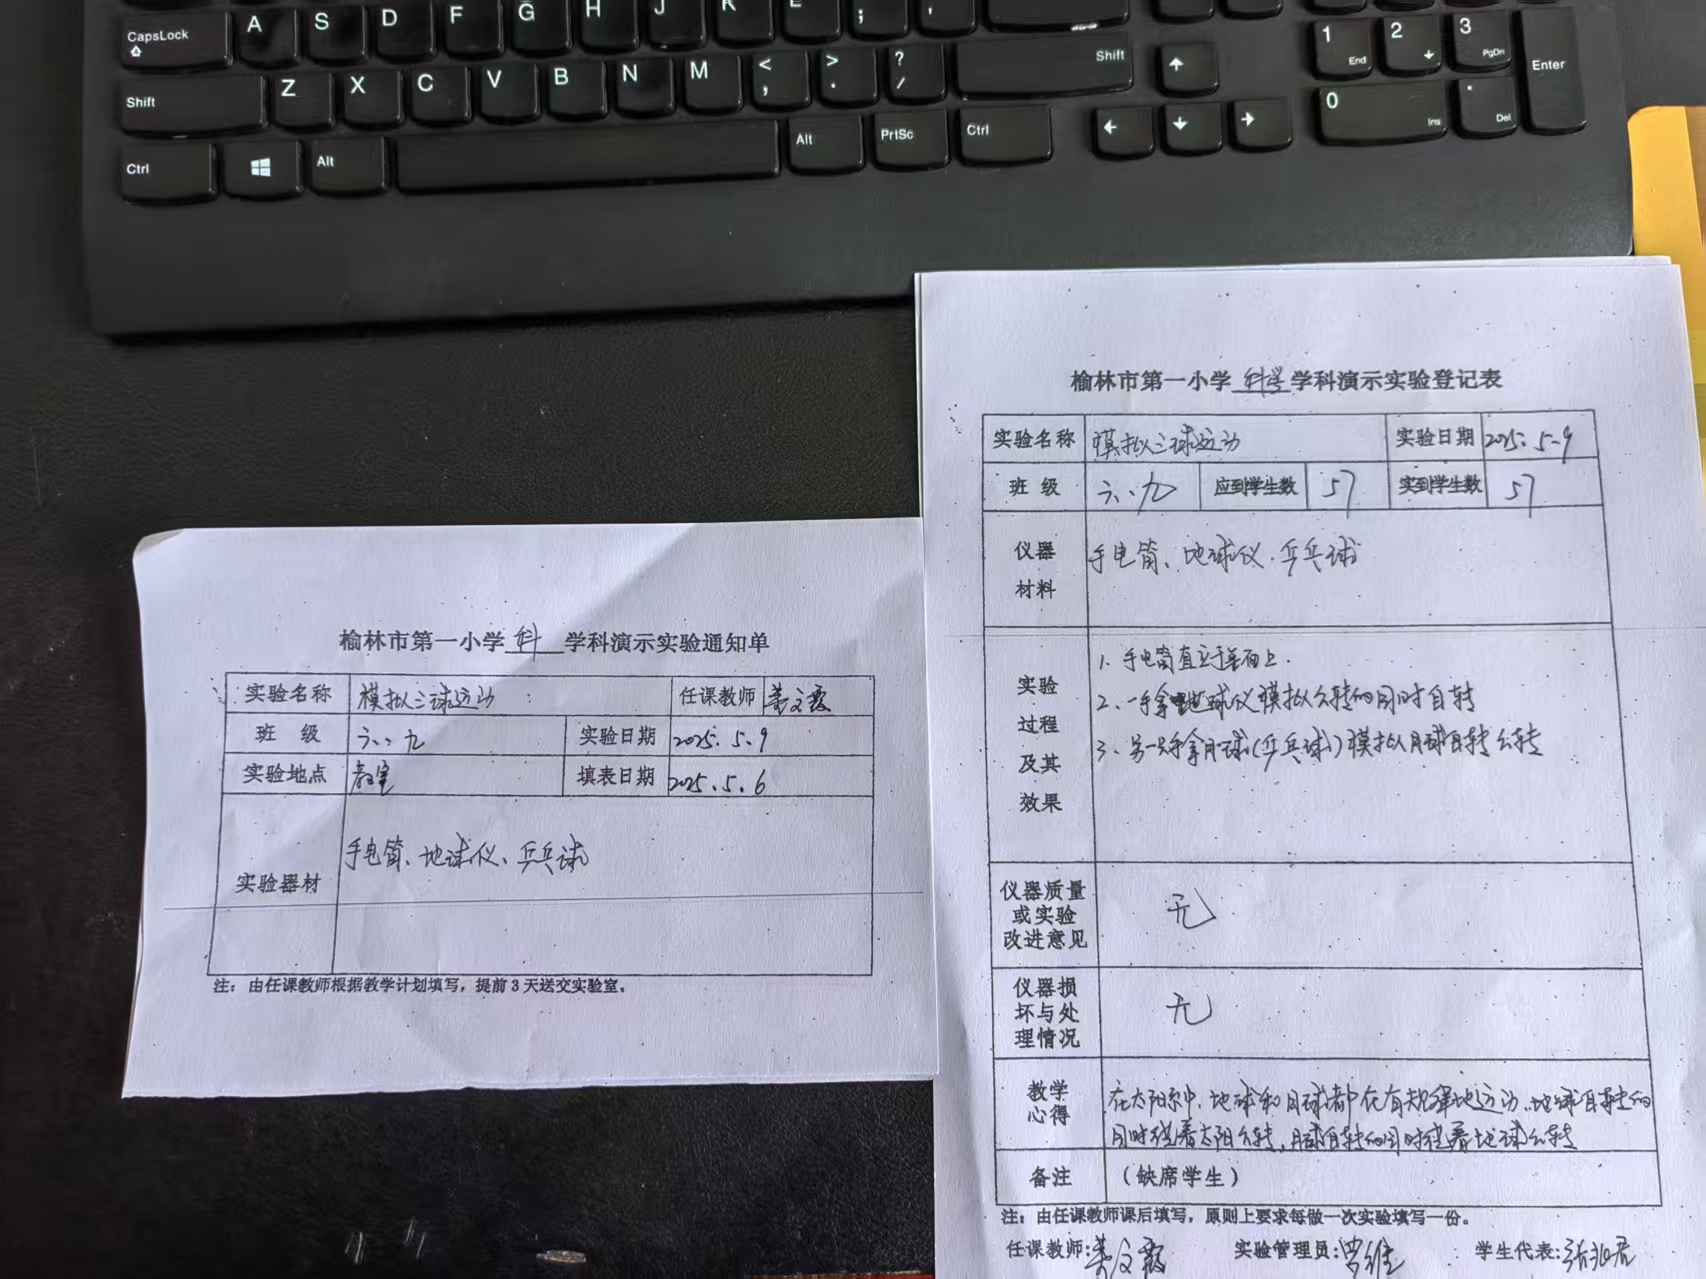 CapsLock A S D F G H J K L ; '
Shift Z X C V B N M < , > . ? / Shift
Ctrl Alt Alt PrtSc Ctrl
1 End 2 3 PgDn Enter
0 Ins . Del
榆林市第一小学 科 学科演示实验通知单
实验名称 模拟三球运动 任课教师
班 级 六、九 实验日期 2025.5.9
实验地点 教室 填表日期 2025.5.6
实验器材 手电筒、地球仪、乒乓球
注：由任课教师根据教学计划填写，提前3天送交实验室。
榆林市第一小学 科学 学科演示实验登记表
实验名称 模拟三球运动 实验日期 2025.5.9
班 级 六、九 应到学生数 57 实到学生数 57
仪器
材料
手电筒、地球仪.乒乓球
实验
过程
及其
效果
1. 手电筒直立于桌面上.
2. 一手拿地球仪模拟公转的同时自转
3. 另一只手拿月球(乒乓球)模拟月球自转公转
仪器质量
或实验
改进意见
无
仪器损
坏与处
理情况
无
教学
心得
在太阳系中，地球和月球都在有规律地运动，地球自转的
同时绕着太阳公转，月球自转的同时绕着地球公转
备注 （缺席学生）
注：由任课教师课后填写，原则上要求每做一次实验填写一份。
任课教师: 实验管理员:罗维 学生代表: